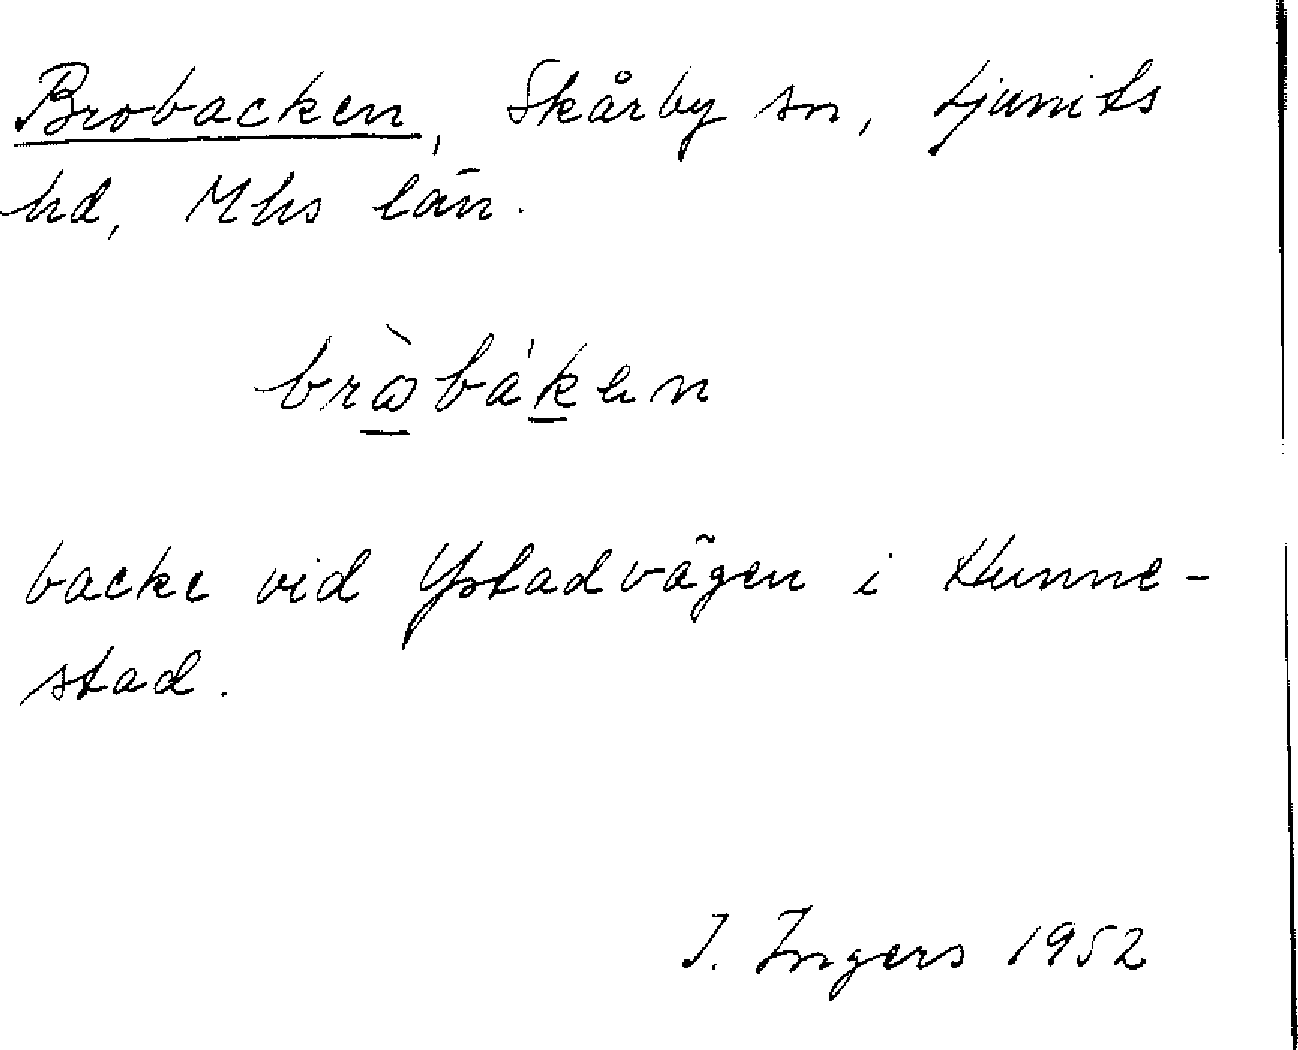 Brobacken, Skårby sn, Ljunits
hd, Mhs län.
bròbáken
backe vid Ystadvägen i Hunne-
stad.
I. Ingers 1952